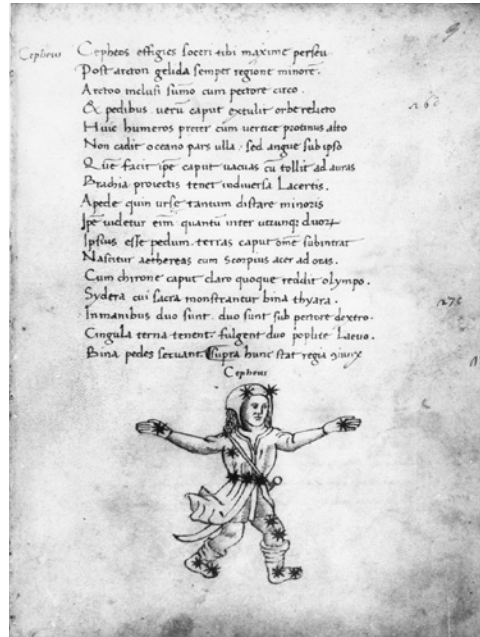 Cepheus
Cepheos effigies soceri tibi maxime perseu
Post arcton gelida semper regione minorē.
Arctoo inclusi sūmo cum pectore circo.
Ex pedibus verū caput extulit orbe relicto
Huic humeros preter cum vertice protinus alto
Non cadit oceano pars ulla. sed angue sub ipso
Quē facit ipē caput vacuas cū tollit ad auras
Brachia proiectis tenet indiversa Lacertis.
Apede quin urse tantum distare minoris
Ipē videtur eim quantū inter utrunq; duorꝝ
Ipsius esse pedum. terras caput omē subintrat
Nascitur aethereas cum Scorpius acer ad oras.
Cum chirone caput claro quoque reddit olympo.
Sydera cui sacra monstrantur bina thyara.
Inmanibus duo sunt. duo sunt sub pectore dextro.
Cingula terna tenent. fulgent duo poplite Laevo.
Bina pedes servant. supra hunc stat regia
Cepheus
9
260
275